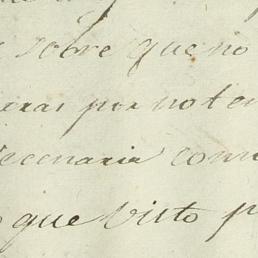 sobre que no
eras por not en
ecenaria com
que Visto p